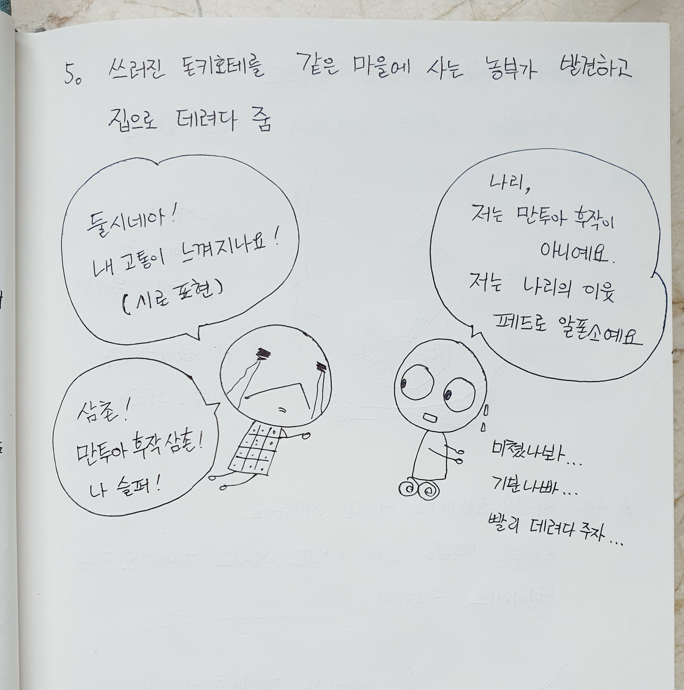 5. 쓰러진 돈키호테를 같은 마을에 사는 농부가 발견하고
집으로 데려다 줌
둘시네아!
내 고통이 느껴지나요!
(시로 표현)
삼촌!
만투아 후작 삼촌!
나 슬퍼!
나리,
저는 만투아 후작이
아니예요.
저는 나리의 이웃
페드로 알폰소예요
미쳤나봐...
기분나빠...
빨리 데려다 주자...